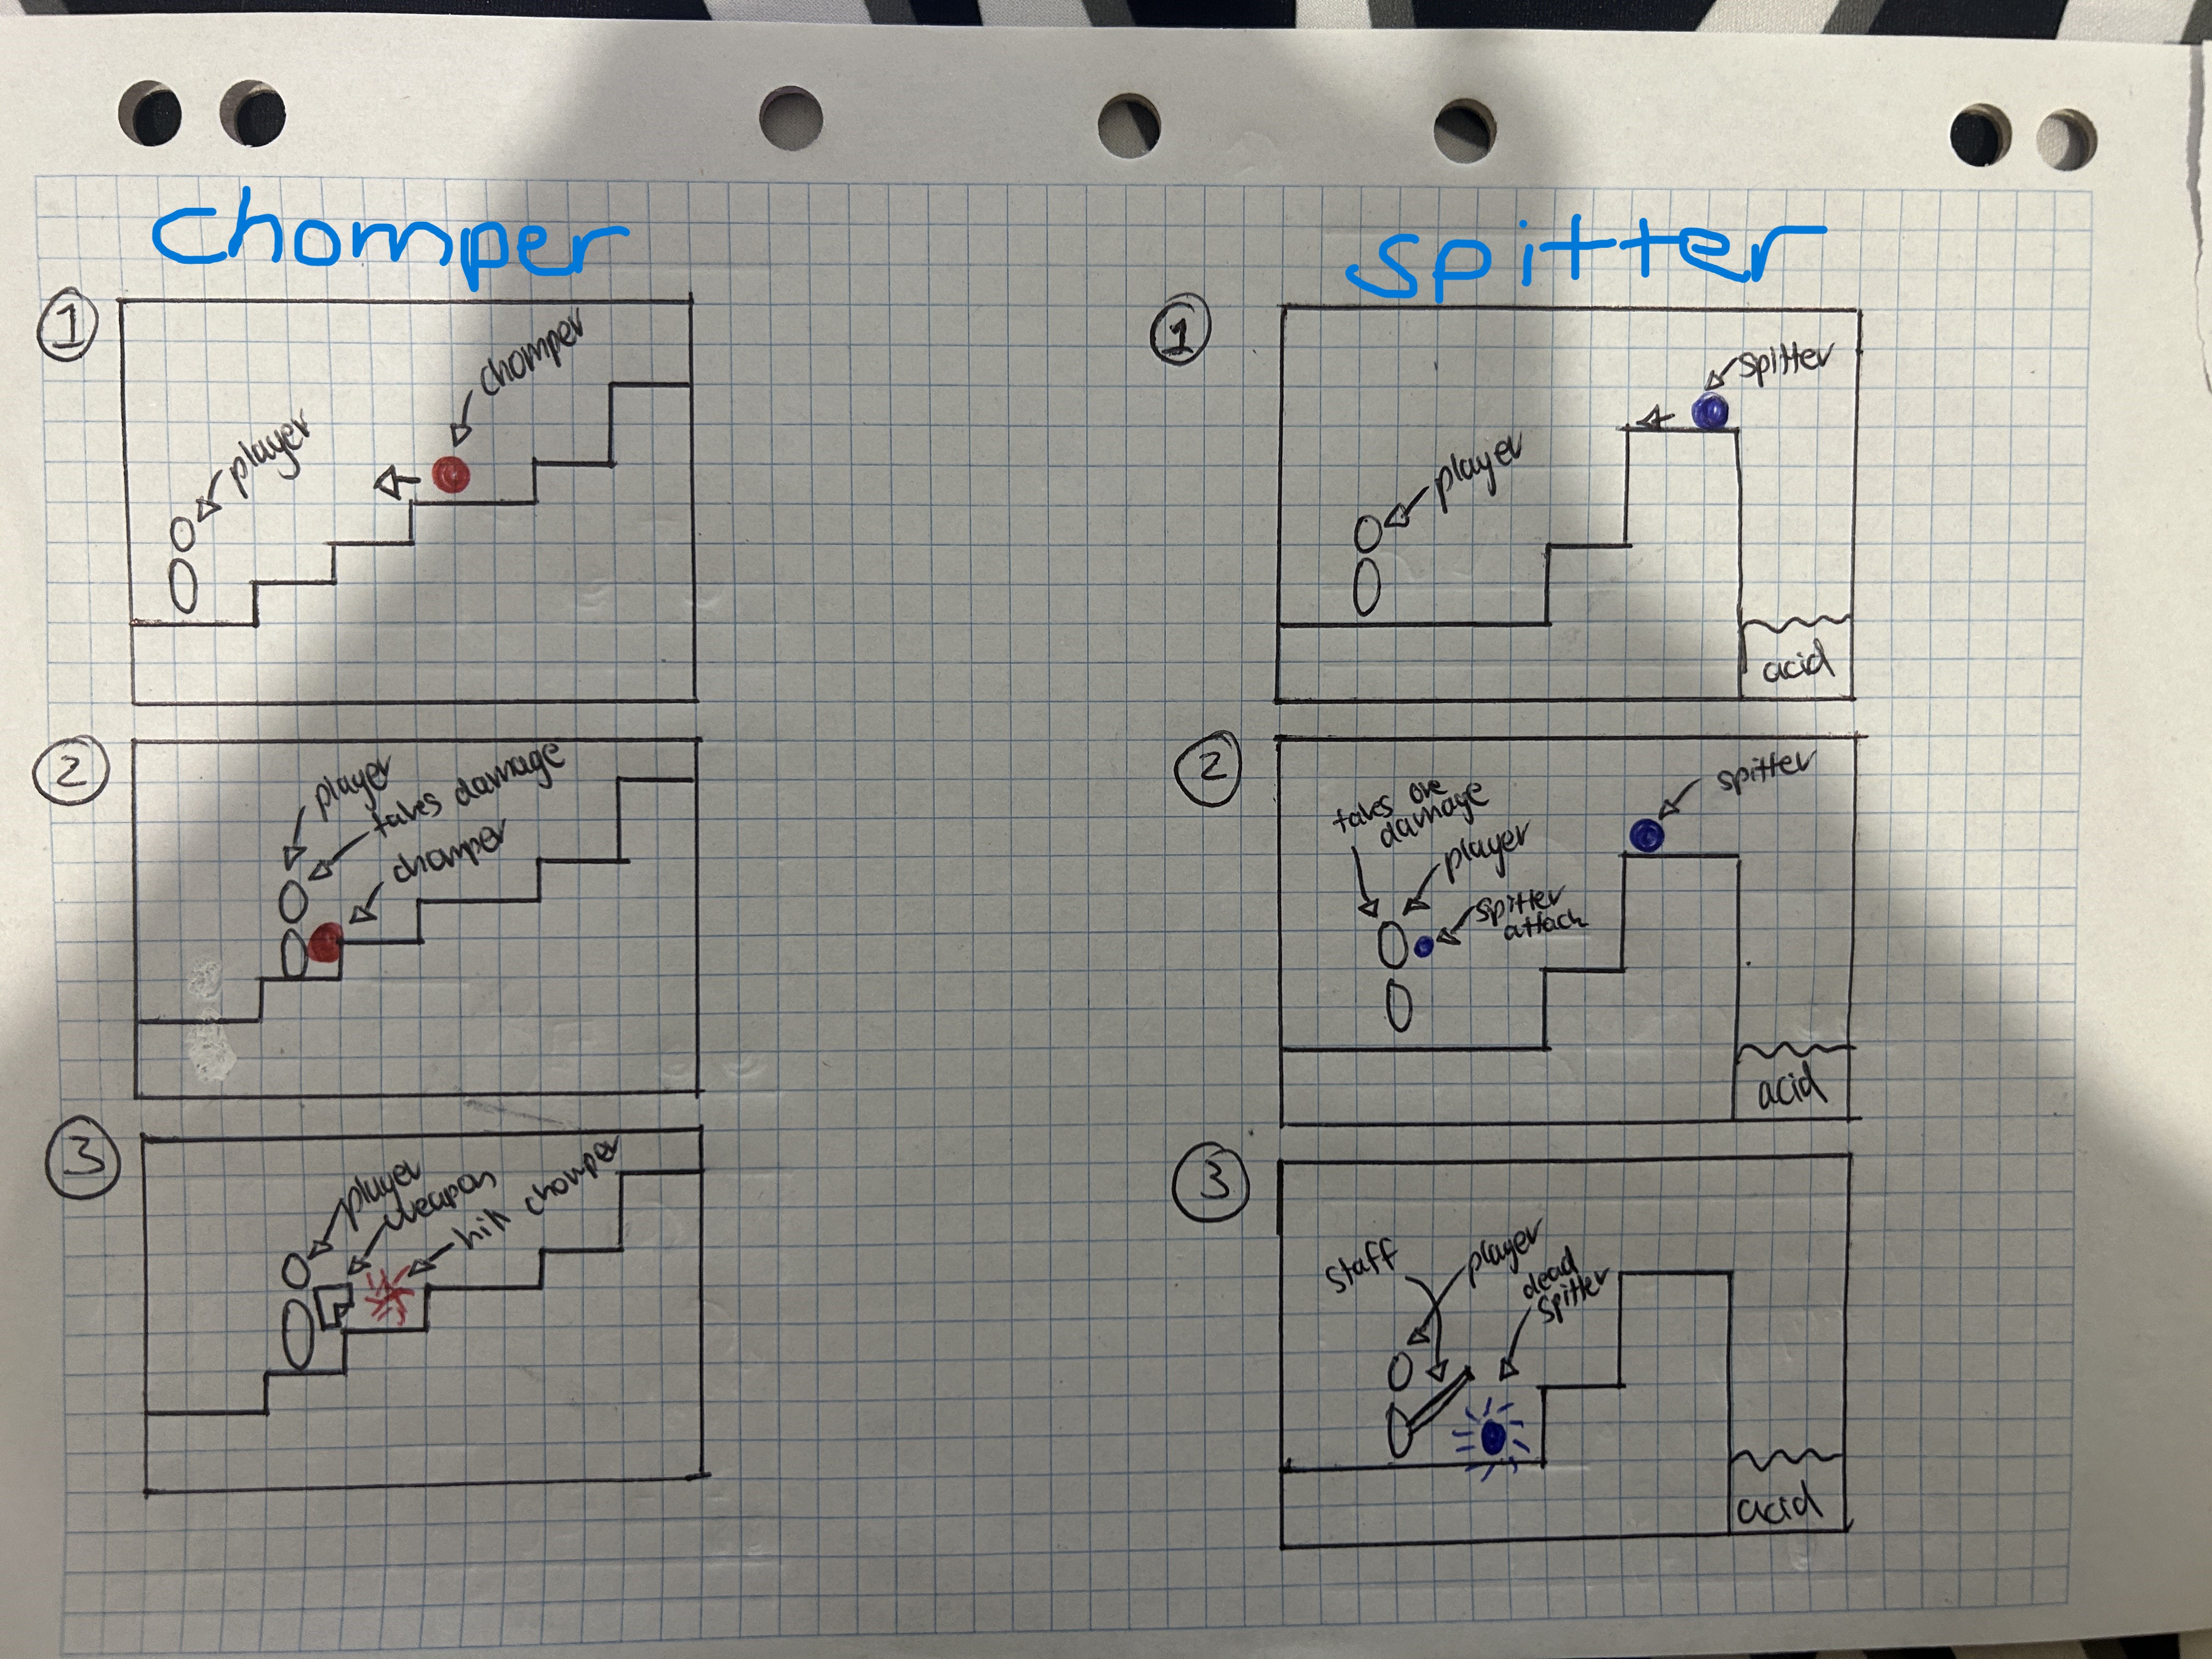 chomper
1
chomper
player
2
player
takes damage
chomper
3
player
weapon
chomper
spitter
1
spitter
player
acid
2
spitter
takes one
damage
player
spitter
attack
acid
3
staff
player
dead
spitter
acid